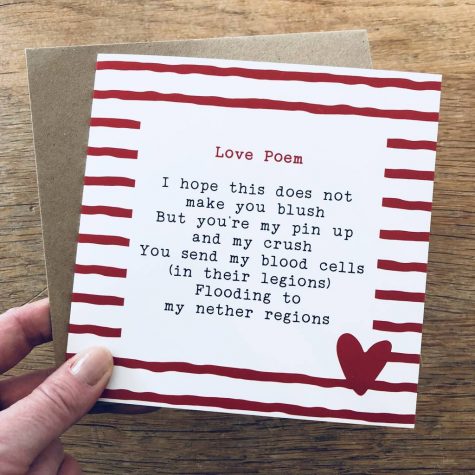 Love Poem
I hope this does not
make you blush
But you're my pin up
and my crush
You send my blood cells
(in their legions)
Flooding to
my nether regions